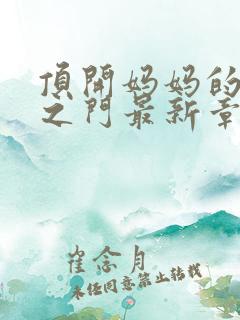 頂開妈妈的
之门最新章
崔念月
未经同意禁止转载